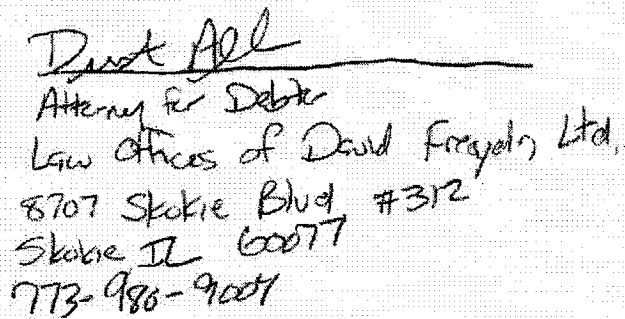 Attorney for Debtor
Law Offices of David Freydin, Ltd.
8707 Skokie Blvd #312
Skokie IL 60077
773-980-9004